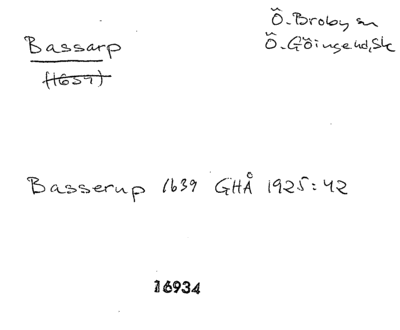 Bassarp
(1659)
Ö. Broby sn
Ö. Göinge hd, Sk
Basserup 1639 GHÅ 1925:42
16934